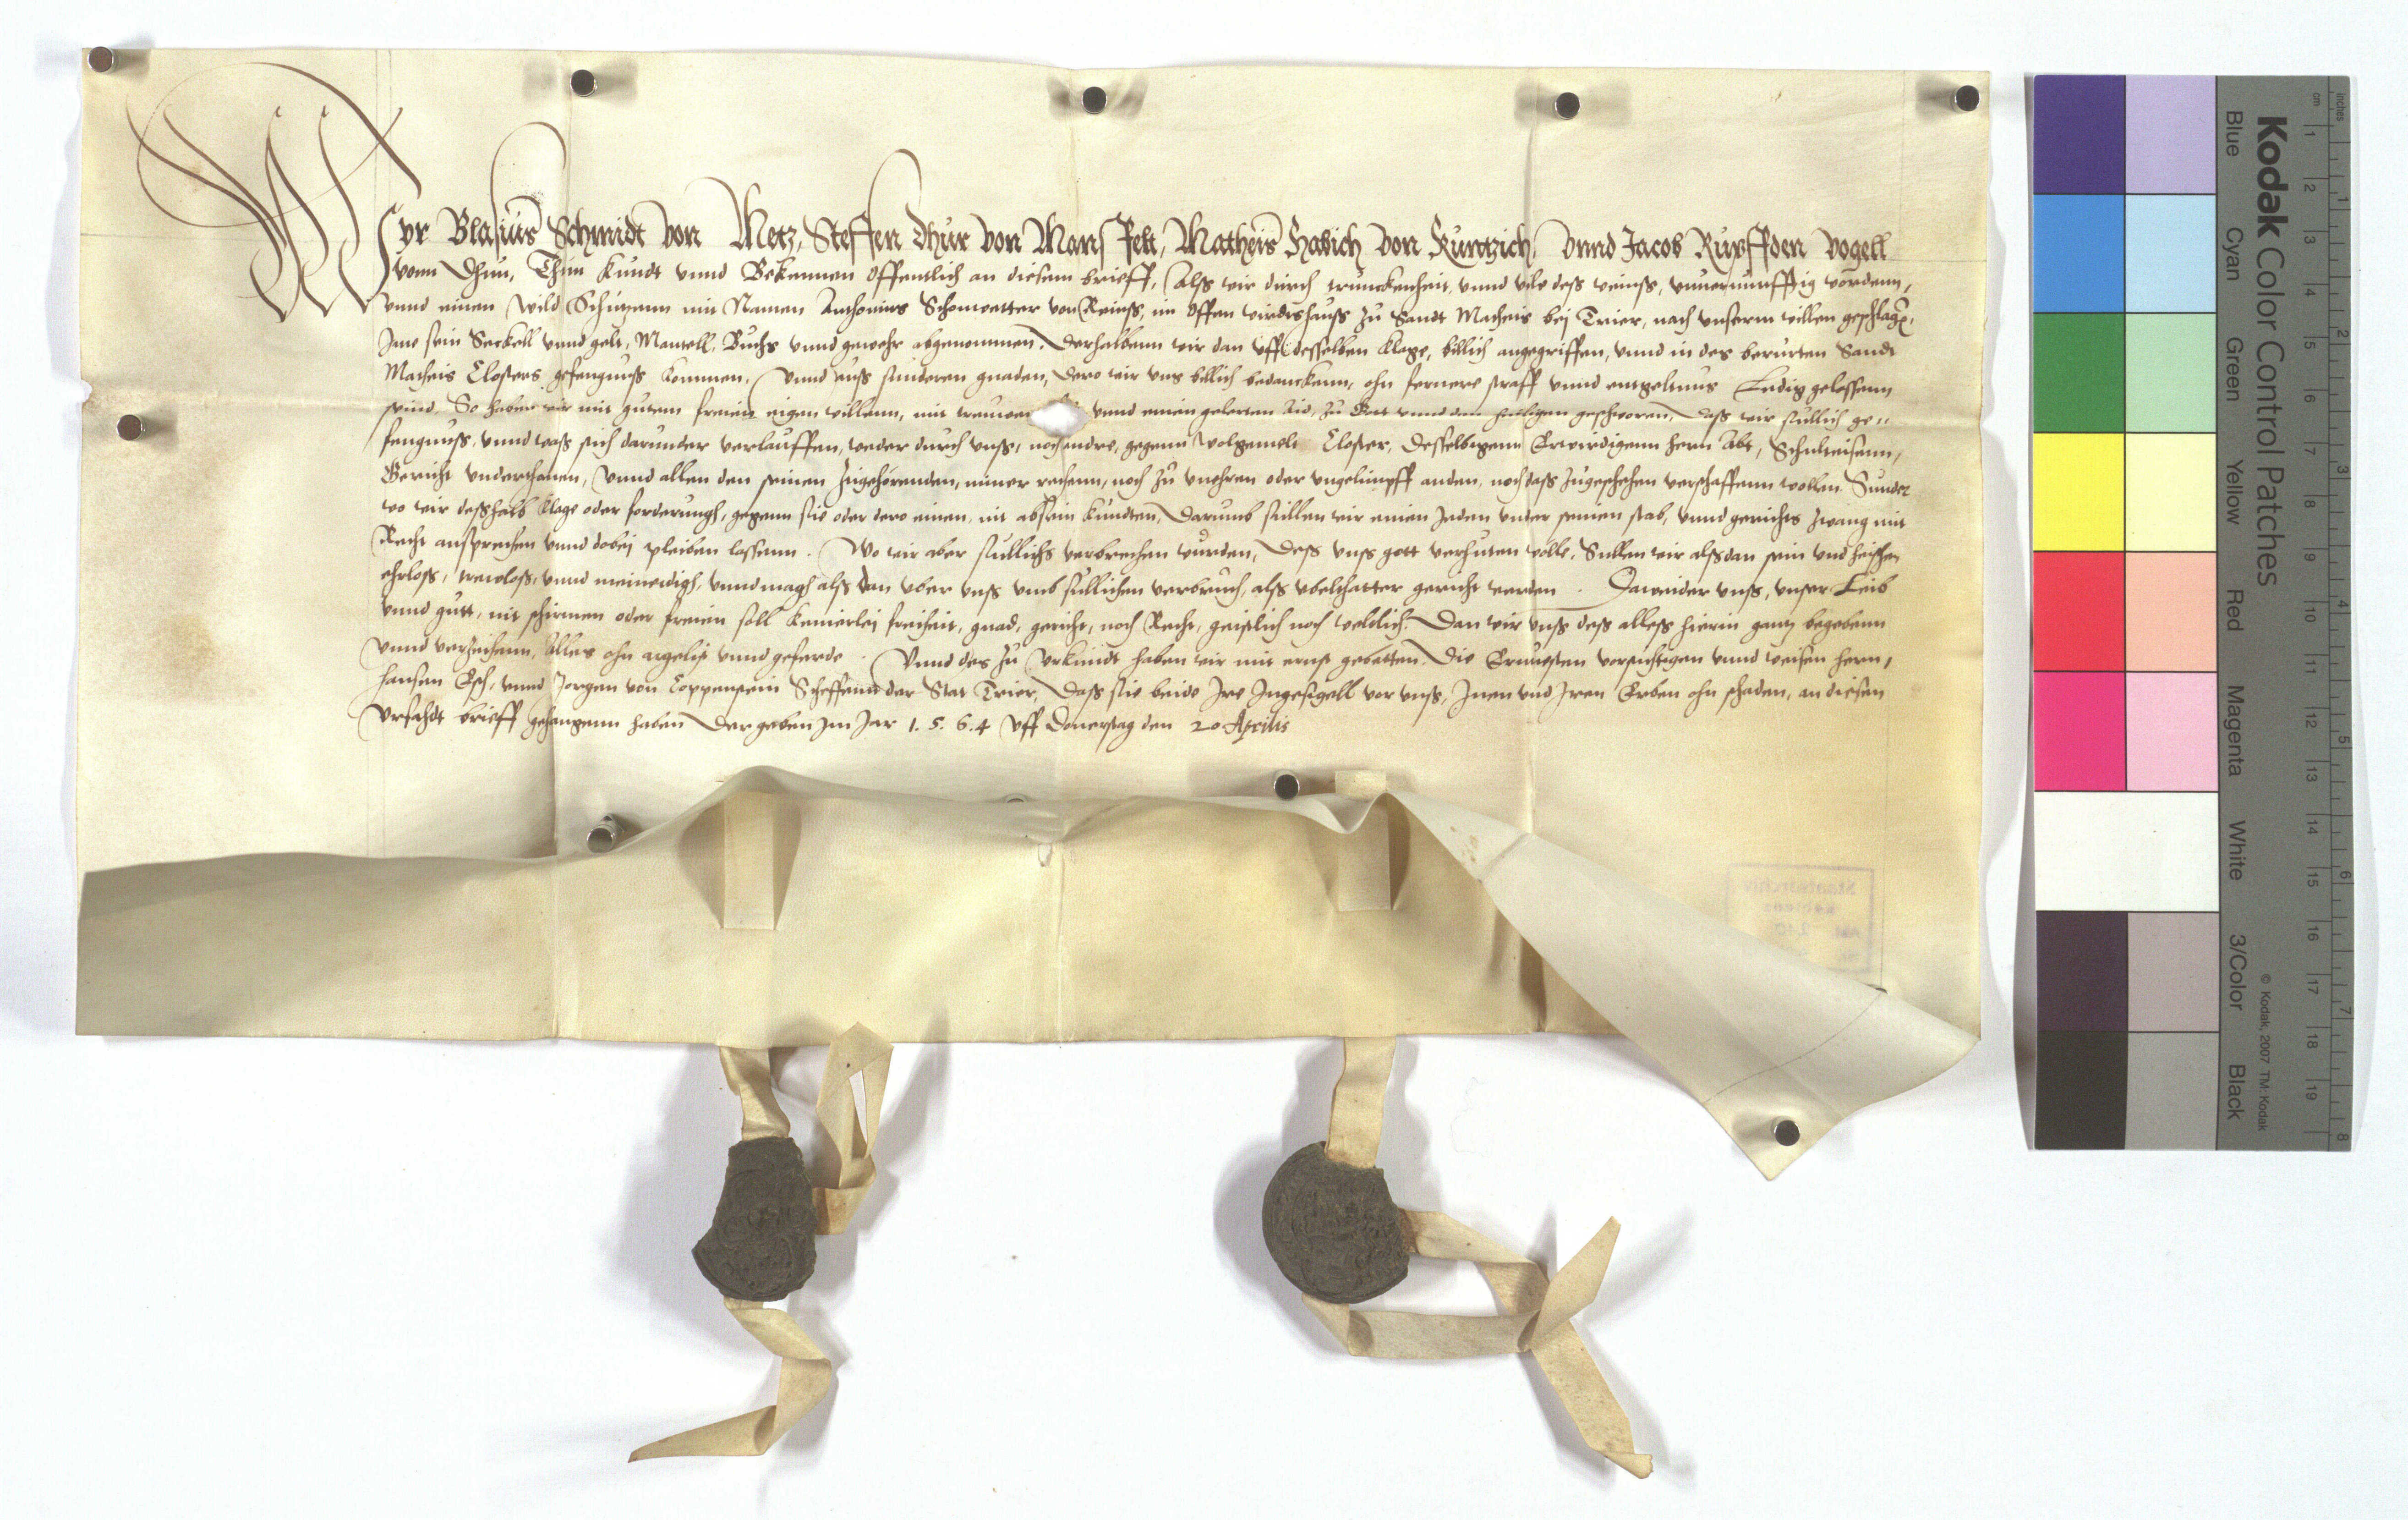 Wyr Blasius Schmidt von Metz, Steffen Dhur von Mansfelt, Matheis Habich von Kuntzich, vnnd Jacob Rupffden vogell
vonn Dhun, Thun kundt vnnd Bekennen offentlich an diesem brieff, Alß wir durch trunckenheit, vnnd vile deß weinß, vnuernunfftig wordenn,
vnnd einen Wild Schutzenn mit Namen Anthonius Schomvatter von Reinß, im offen wirdtshauß zu Sandt Matheis bej Trier, nach vnserm willen geschlagen,
Jme sein Seckell vnnd gelt, Mantell, Buchs vnnd gewehr abgenommen. Derhalbenn wir dan vff desselben klage, billich angegriffen, vnnd in des berurten Sandt
Matheis Closters gefengnuß kommen. Vnnd auß sunderen gnaden, dero wir vns billich bedancken, ohn fernere straff vnnd entgeltnus Ledig gelassenn
seind. So haben wir mit gutem freien eigen willenn, mit treuwen vnnd einem gelerten Aid, zu Got vnnd den heiligen geschworen, daß wir sullich ge„
fengnuß, vnnd waß sich darunder verlauffen, weder durch vnß, noch andre, gegenn wolgemelt Closter, desselbigenn Erwirdigenn hern Abt, Schulteisenn,
Gericht vnderthanen, vnnd allen den seinen zugehorenden, nimer rechenn, noch zu vnehren oder vngelimpff anden, noch daß zugeschehen verschaffenn wollen. Sunder
wo wir deßhalb klage oder forderungh, gegenn sie oder dero einen, nit absein kundten, darumb sullen wir einen Jeden vnder seinen stab, vnnd gerichts zwang mit
Recht ansprechen vnnd dobej pleiben lassenn. Wo wir aber sullichs verbrechen wurden, deß vnß gott verhuten wolle, Sullen wir alßdan sein vnd heischen
ehrloß, trewloß, vnnd meineidigh, vnnd magh alß dan vber vnß vmb sullichen verbruch, alß vbelthatter gericht werden. Daweider vnß, vnser Leib
vnnd gutt, nit schirmen oder freien soll keinerlej freiheit, gnad, gericht, noch Recht, geistlich noch weltlich. Dan wir vnß deß alleß hierin gantz begebenn
vnnd verzeihenn, Alles ohn argelist vnnd geferde. Vnnd des zu Vrkundt haben wir mit ernst gebetten. Die Ernuesten vorsichtigen vnnd weisen hern,
Hansen Esch, vnnd Jorgen von Coppenstein Scheffenn der Stat Trier, daß sie beide Jre Jngesigell vor vnß, Jnen vnd Jren Erben ohn schaden, an diesen
Vrfahdt brieff gehangenn haben Der geben Jm Jar 1.5.6.4 Vff Donerstag den 20 Aprilis
Staatsarchiv
Koblenz
Kodak Color Control Patches
Blue Cyan Green Yellow Red Magenta White 3/Color Black
© Kodak, 2007 TM: Kodak
inches 1 2 3 4 5 6 7 8
cm 1 2 3 4 5 6 7 8 9 10 11 12 13 14 15 16 17 18 19